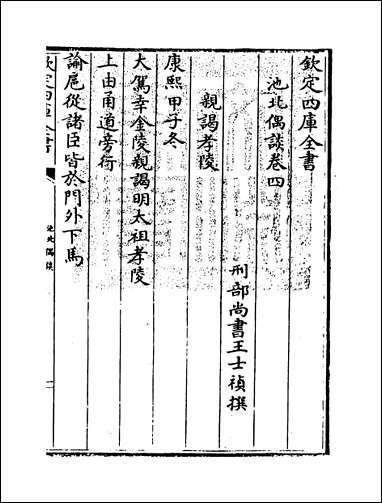 欽定四庫全書
池北偶談卷四
刑部尚書王士禎撰
親謁孝陵
康熙甲子冬
大駕幸金陵親謁明太祖孝陵
上由甬道旁行
諭扈從諸臣皆於門外下馬
欽定四庫全書
池北偶談
一